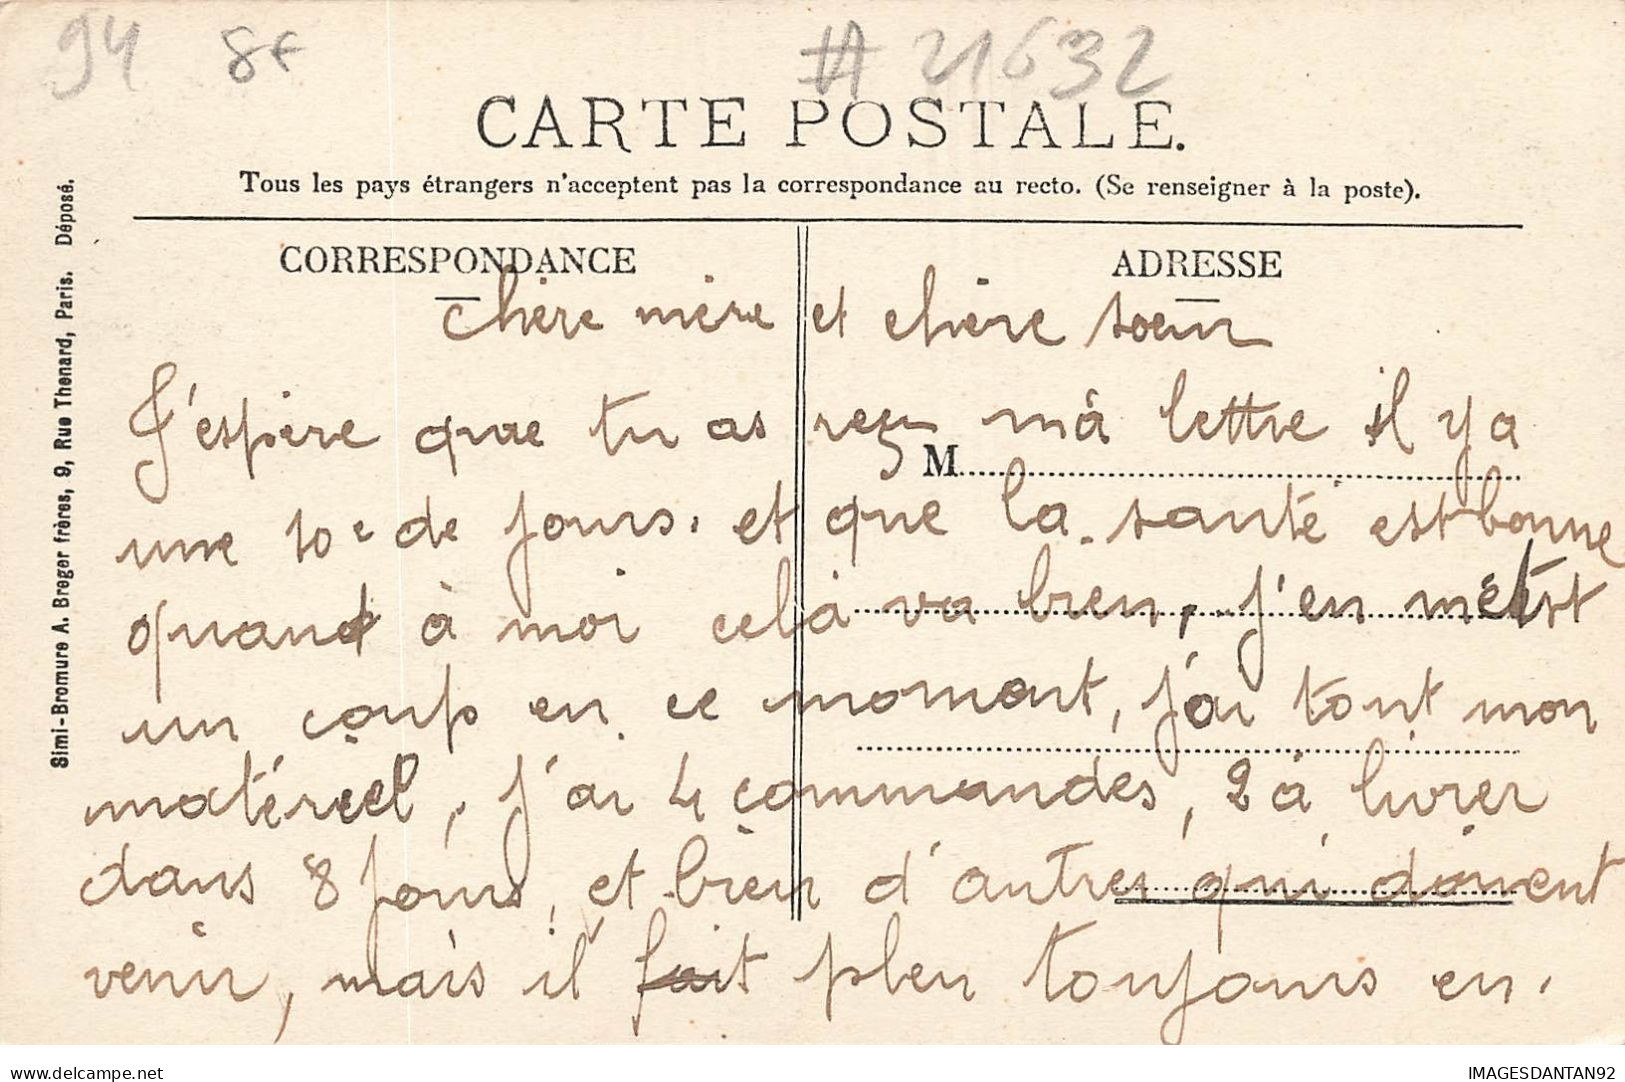 94 8€ # 21632
CARTE POSTALE.
Tous les pays étrangers n'acceptent pas la correspondance au recto. (Se renseigner à la poste).
CORRESPONDANCE
ADRESSE
chère mère et chère soeur
J'espère que tu as reçu mà lettre il y a
M
une 10e de jours. et que la santé est bonne
quand à moi celà va bien, j'en mets
un coup en ce moment, j'ai tout mon
matériel, j'ai 4 commandes, 2 à livrer
dans 8 jours, et bien d'autres qui doivent
venir, mais il fait pleu toujours en.
Simi-Bromure A. Breger frères, 9, Rue Thenard, Paris. Déposé.
IMAGESDANTAN92